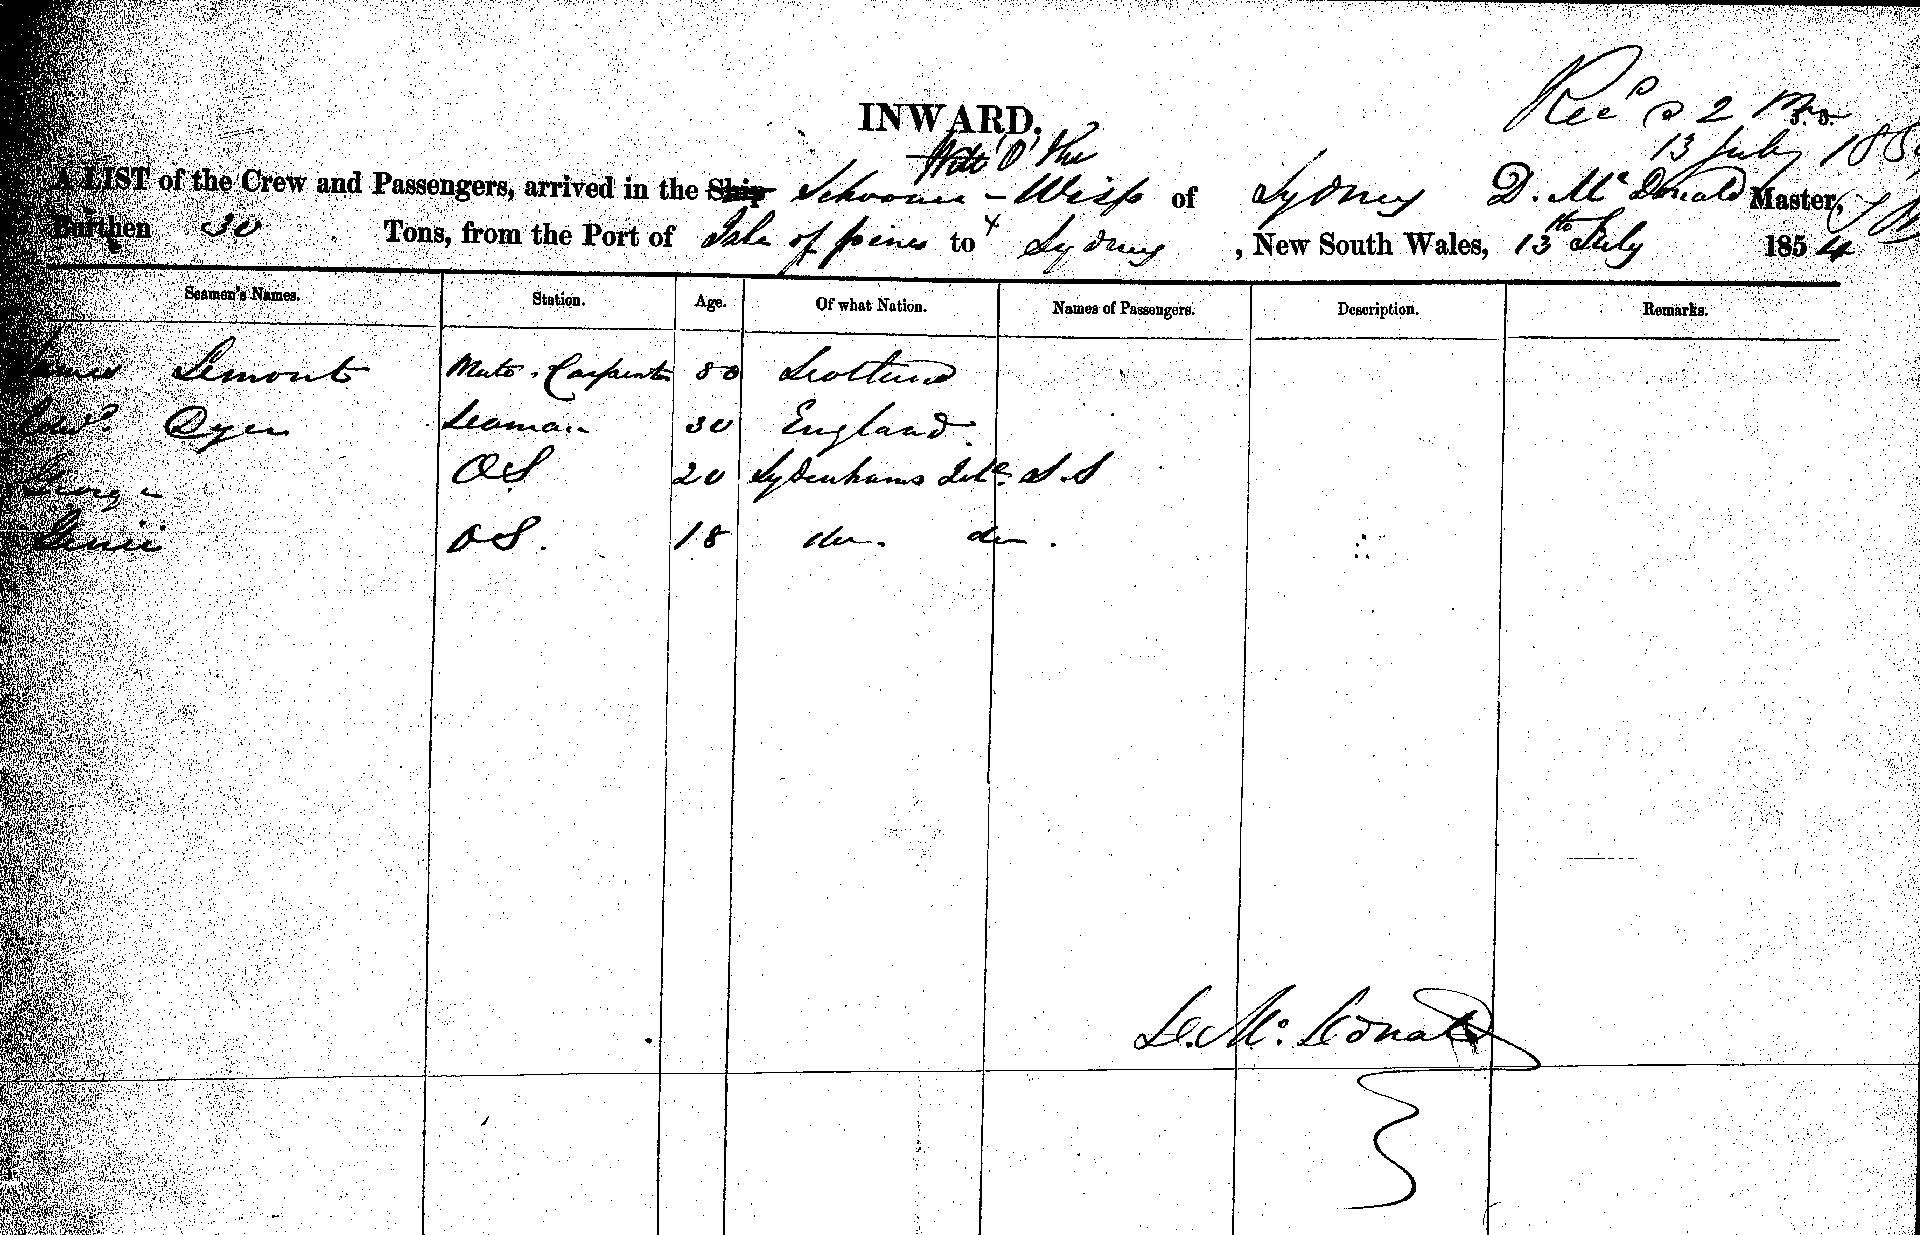 INWARD.
Recd @ 2 Pm
13 July 185
Will O' the
A LIST of the Crew and Passengers, arrived in the Ship Schooner - Wisp of Sydney D. Mc Donald Master,
Burthen 30 Tons, from the Port of Isle of pines to Sydney , New South Wales, 13th July 1854
Seamen's Names. Station. Age. Of what Nation. Names of Passengers. Description. Remarks.
James Lemont Mate & Carpenter 50 Scotland
Edwd. Dyer Seaman 30 England
George OS 20 Sydenhams Isle S.S
OS. 18 do. do.
D. Mc. Donald